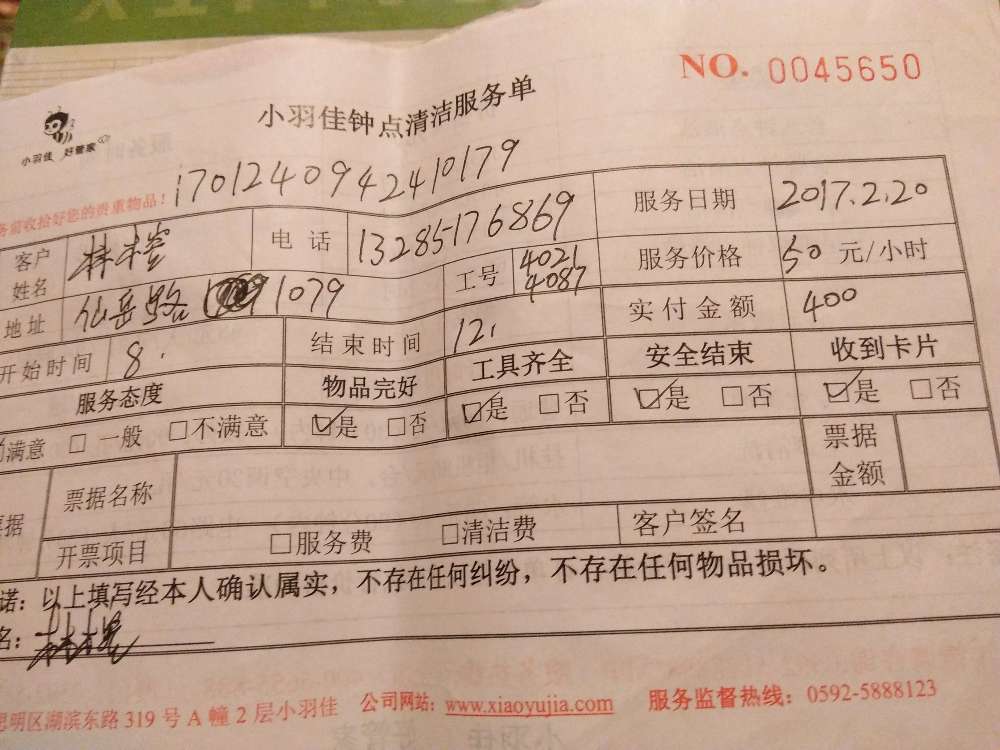 NO. 0045650
小羽佳钟点清洁服务单
小羽佳 好管家
1701240942410179
务前收拾好您的贵重物品！
客户姓名 电话 13285176869 服务日期 2017.2.20
地址 仙岳路 1079 工号 4021 4087 服务价格 50 元/小时
开始时间 8. 结束时间 12. 实付金额 400
服务态度 物品完好 工具齐全 安全结束 收到卡片
满意 □ 一般 □不满意 ☑是 □否 ☑是 □否 ☑是 □否 ☑是 □否
票据名称 票据金额
据 开票项目 □服务费 □清洁费 客户签名
诺：以上填写经本人确认属实，不存在任何纠纷，不存在任何物品损坏。
名：
思明区湖滨东路 319 号 A 幢 2 层小羽佳 公司网站：www.xiaoyujia.com 服务监督热线：0592-5888123